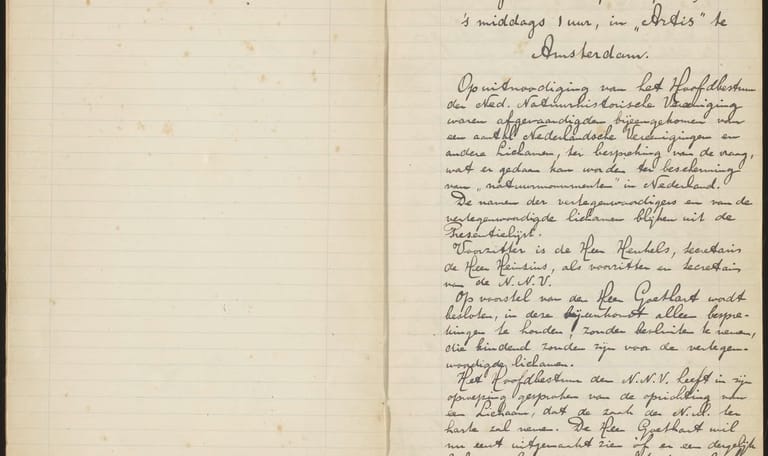 's middags 1 uur, in „Artis" te
Amsterdam.
Op uitnoodiging van het Hoofdbestuur
der Ned. Natuurhistorische Vereeniging
waren afgevaardigden bijeengekomen van
een aantal Nederlandsche Vereenigingen en
andere Lichamen, ter bespreking van de vraag,
wat er gedaan kan worden ter bescherming
van „natuurmonumenten" in Nederland.
De namen der vertegenwoordigers en van de
vertegenwoordigde lichamen blijken uit de
Presentielijst.
Voorzitter is de Heer Heukels, secretaris
de Heer Heinsius, als voorzitter en secretaris
van de N.N.V.
Op voorstel van den Heer Goethart wordt
besloten, in deze bijeenkomst alleen bespre-
kingen te houden, zonder besluiten te nemen,
die bindend zouden zijn voor de vertegen-
woordigde lichamen.
Het Hoofdbestuur der N.N.V. heeft in zijn
oproeping gesproken van de oprichting van
een Lichaam, dat de zaak der N.M. ter
harte zal nemen. De Heer Goethart wil
nu eerst uitgemaakt zien of er een dergelijk